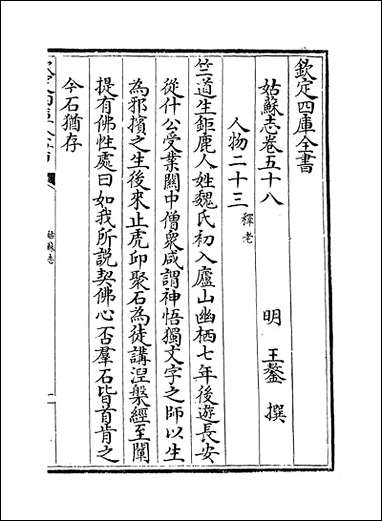 欽定四庫全書
姑蘇志卷五十八
明 王鏊 撰
人物二十三 釋老
竺道生鉅鹿人姓魏氏初入廬山幽栖七年後遊長安
從什公受業關中僧衆咸謂神悟獨文字之師以生
為邪擯之生後來止虎丘聚石為徒講湼槃經至闡
提有佛性處曰如我所説契佛心否羣石皆首肯之
今石猶存
姑蘇志